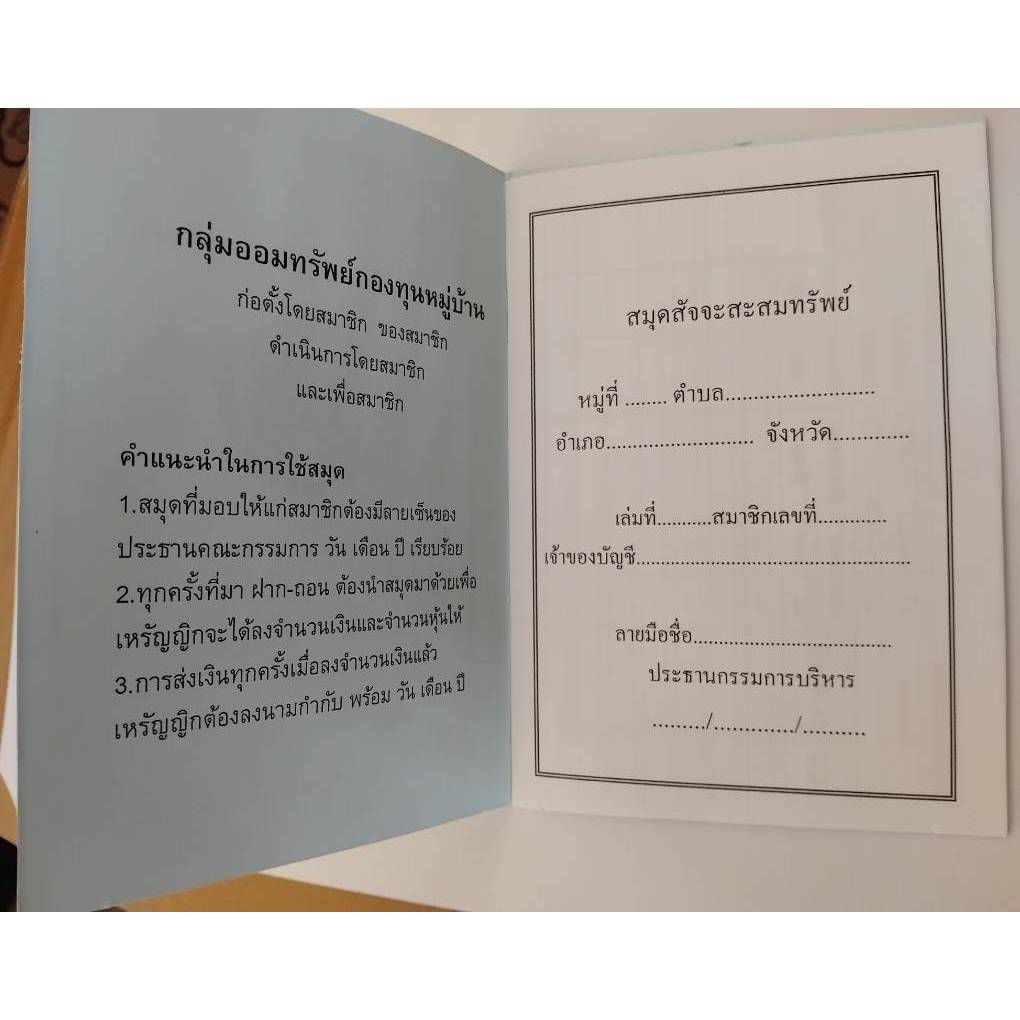 กลุ่มออมทรัพย์กองทุนหมู่บ้าน
ก่อตั้งโดยสมาชิก ของสมาชิก
ดำเนินการโดยสมาชิก
และเพื่อสมาชิก
คำแนะนำในการใช้สมุด
1.สมุดที่มอบให้แก่สมาชิกต้องมีลายเซ็นของ
ประธานคณะกรรมการ วัน เดือน ปี เรียบร้อย
2.ทุกครั้งที่มา ฝาก-ถอน ต้องนำสมุดมาด้วยเพื่อ
เหรัญญิกจะได้ลงจำนวนเงินและจำนวนหุ้นให้
3.การส่งเงินทุกครั้งเมื่อลงจำนวนเงินแล้ว
เหรัญญิกต้องลงนามกำกับ พร้อม วัน เดือน ปี
สมุดสัจจะสะสมทรัพย์
หมู่ที่ ........ ตำบล............................
อำเภอ............................ จังหวัด..............
เล่มที่...........สมาชิกเลขที่.............
เจ้าของบัญชี....................................................
ลายมือชื่อ......................................
ประธานกรรมการบริหาร
........./............./..........